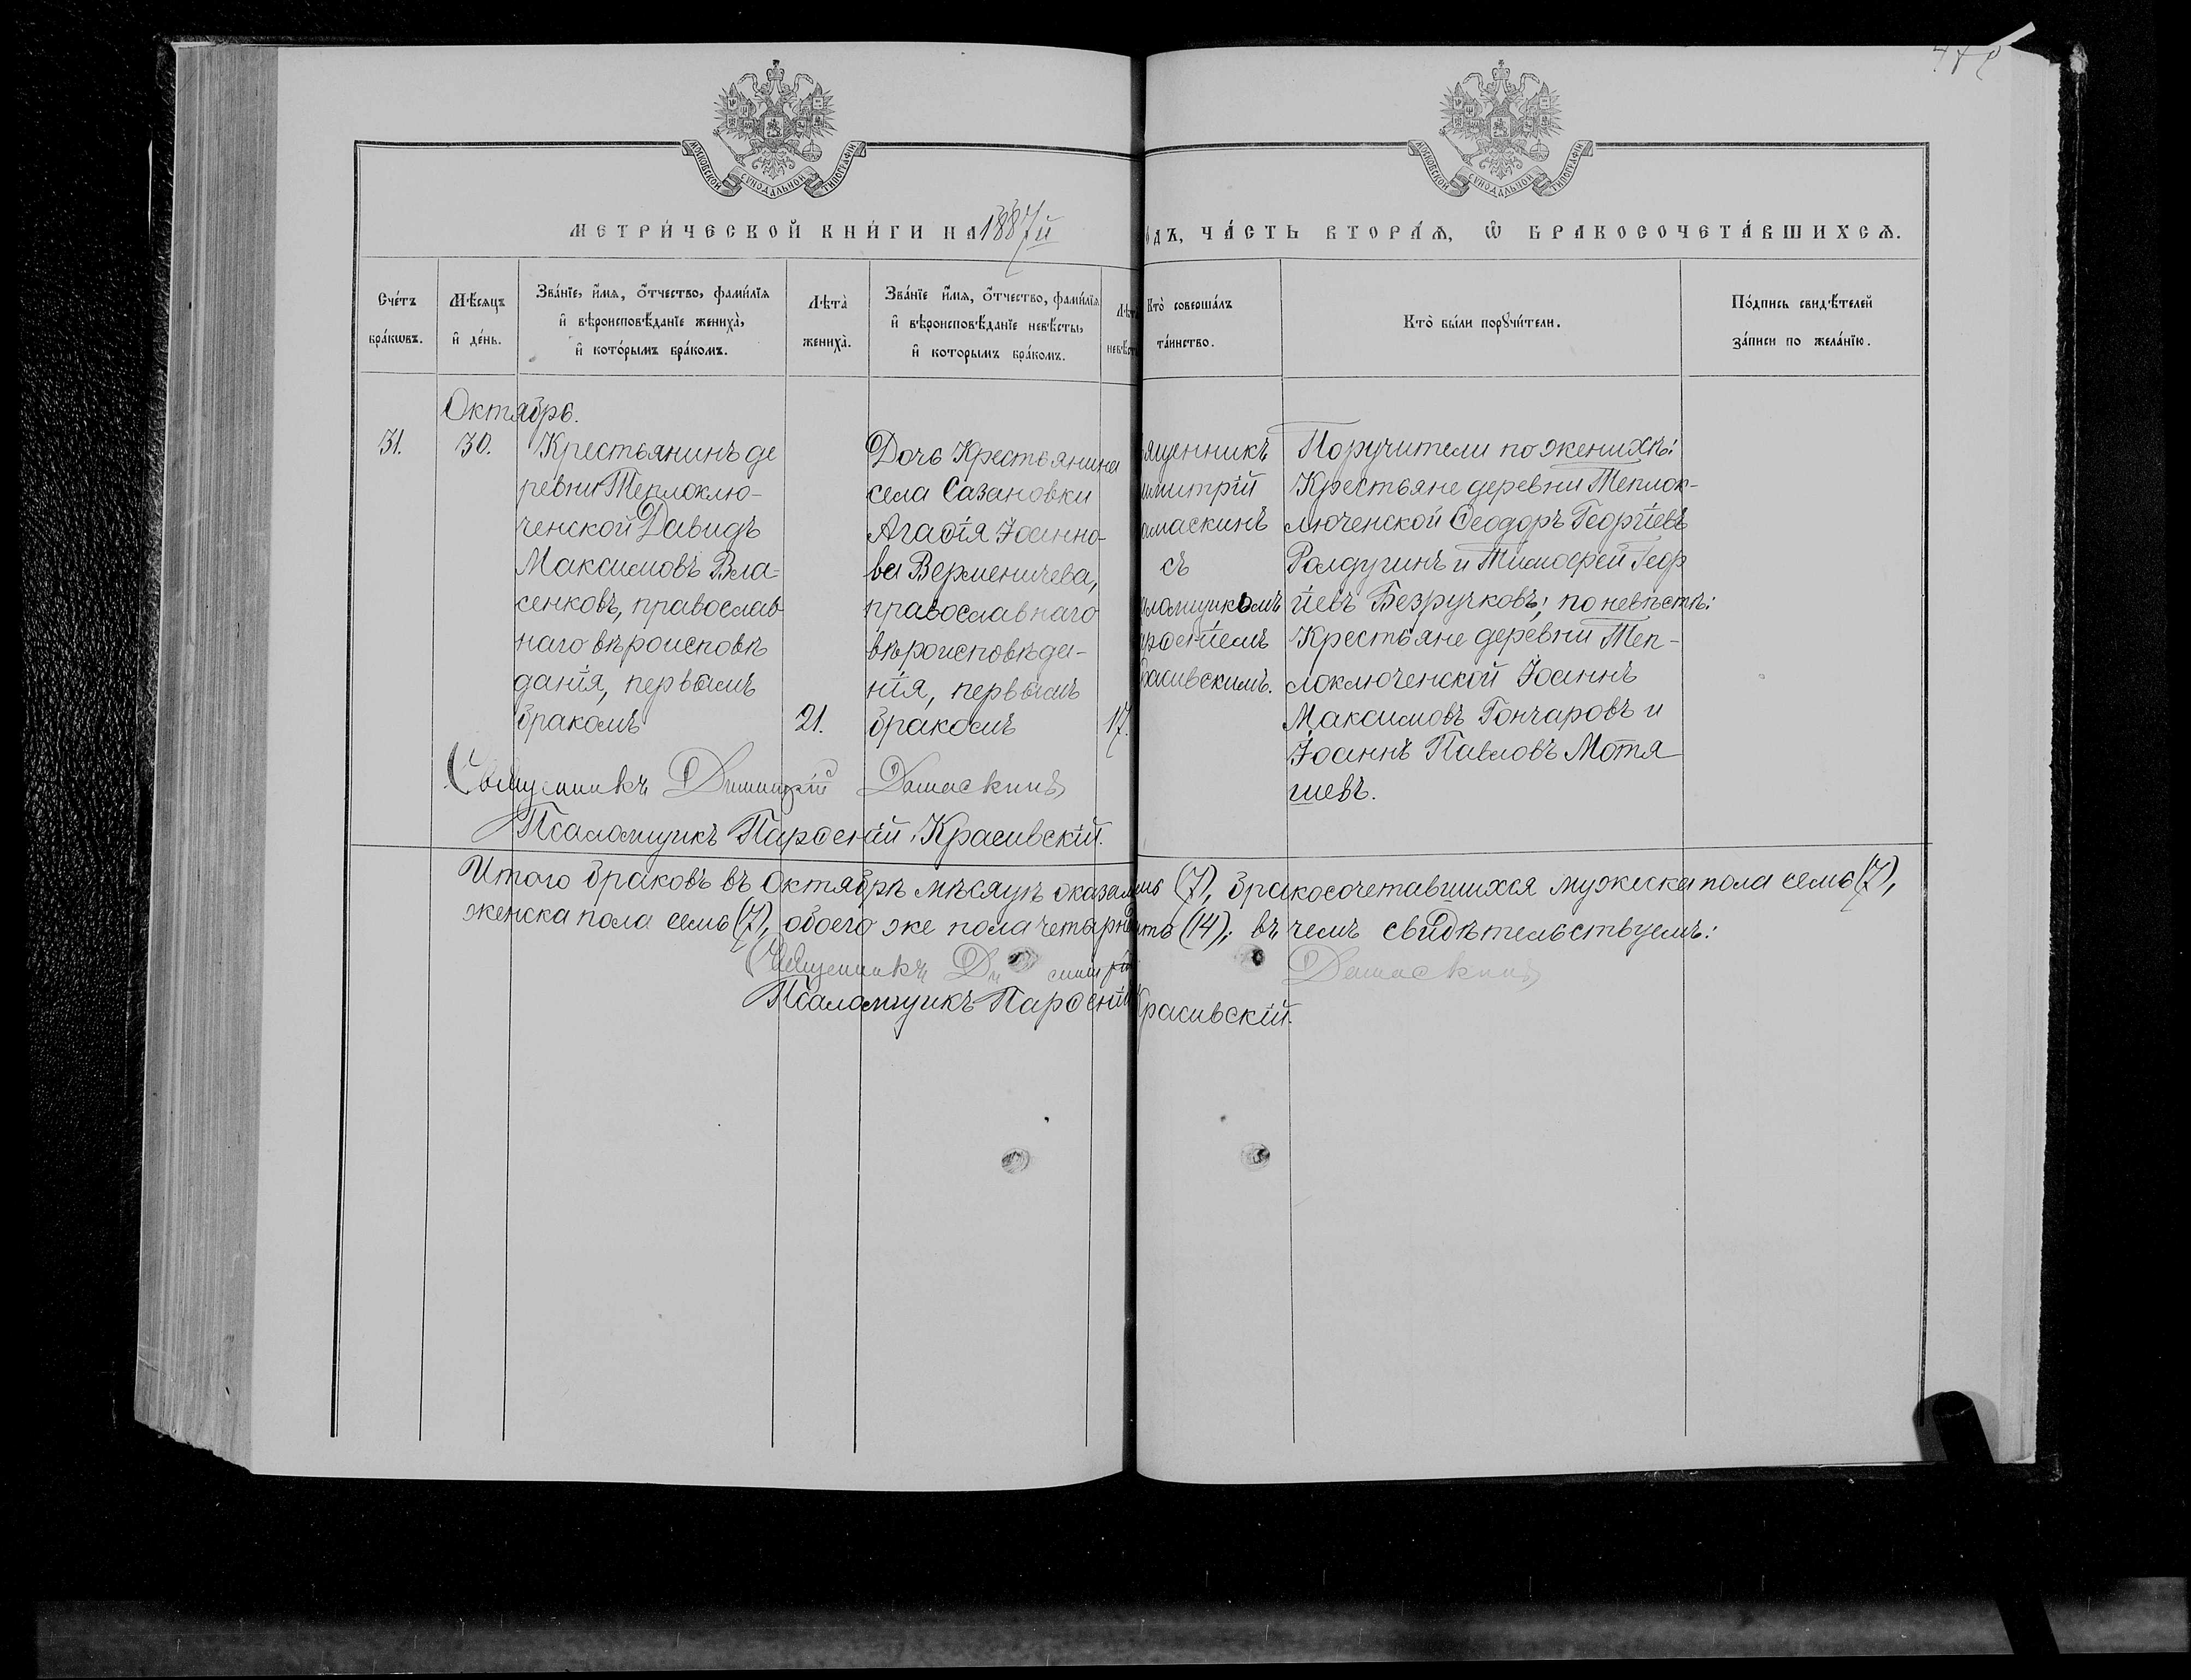 МОСКОВСКОЙ СѴНОДАЛЬНОЙ ТИПОГРАФІИ
МОСКОВСКОЙ СѴНОДАЛЬНОЙ ТИПОГРАФІИ
МЕТРИ́ЧЕСКОЙ КНИ́ГИ НА 1887й
ОДЪ, ЧА́СТЬ ВТОРА́Ѧ, Ѡ҆ БРАКОСОЧЕТА́ВШИХСѦ.
Сче́тъ бра́кѡвъ.
Мѣ́сяцъ и҆ де́нь.
Зва́нїе, и҆́мѧ, ѻ҆́тчество, фами́лїѧ
и҆ вѣроисповѣ́данїе жениха̀,
и҆ кото́рымъ бра́комъ.
Лѣта̀ жениха̀.
Зва́нїе и҆́мѧ, ѻ҆́тчество, фами́лїѧ
и҆ вѣроисповѣ́данїе невѣ́сты,
и҆ которымъ бра́комъ.
Лѣт
невѣст
Кто̀ соверша́лъ та́инство.
Кто̀ бы́ли порꙋчи́тели.
По́дпись свидѣ́телей за́писи по жела́нїю.
Октябрь.
31.
30.
Крестьянинъ де
ревни Теплоклю-
ченской Давидъ
Максимовъ Вла-
сенковъ, православ
наго вѣроисповѣ
данія, первымъ
бракомъ
21.
Дочь Крестьянина
села Сазановки
Агаѳія Іоанно-
ва Верменичева,
православнаго
вѣроисповѣда-
нія, первымъ
бракомъ
17.
ященникъ
имитрій
амаскинъ
съ
аломщикомъ
арѳеніемъ
расивскимъ.
Поручители по женихѣ:
Крестьяне деревни Теплок-
люченской Ѳеодоръ Георгіевъ
Ролдугинъ и Тимоѳей Геор
гіевъ Безручковъ; по невѣстѣ:
Крестьяне деревни Теп-
лоключенской Іоаннъ
Максимовъ Гончаровъ и
Іоаннъ Павловъ Мотя
шевъ.
Священникъ Димитрій Дамаскинъ
Псаломщикъ Парѳеній Красивскій.
Итого браковъ въ Октябрѣ мѣсяцѣ оказалось (7), бракосочетавшихся мужеска пола семь (7),
женска пола семь (7), обоего же пола четырнадцать (14); въ чемъ свидѣтельствуемъ:
Священникъ Димитрій Дамаскинъ
Псаломщикъ Парѳеній Красивскій.